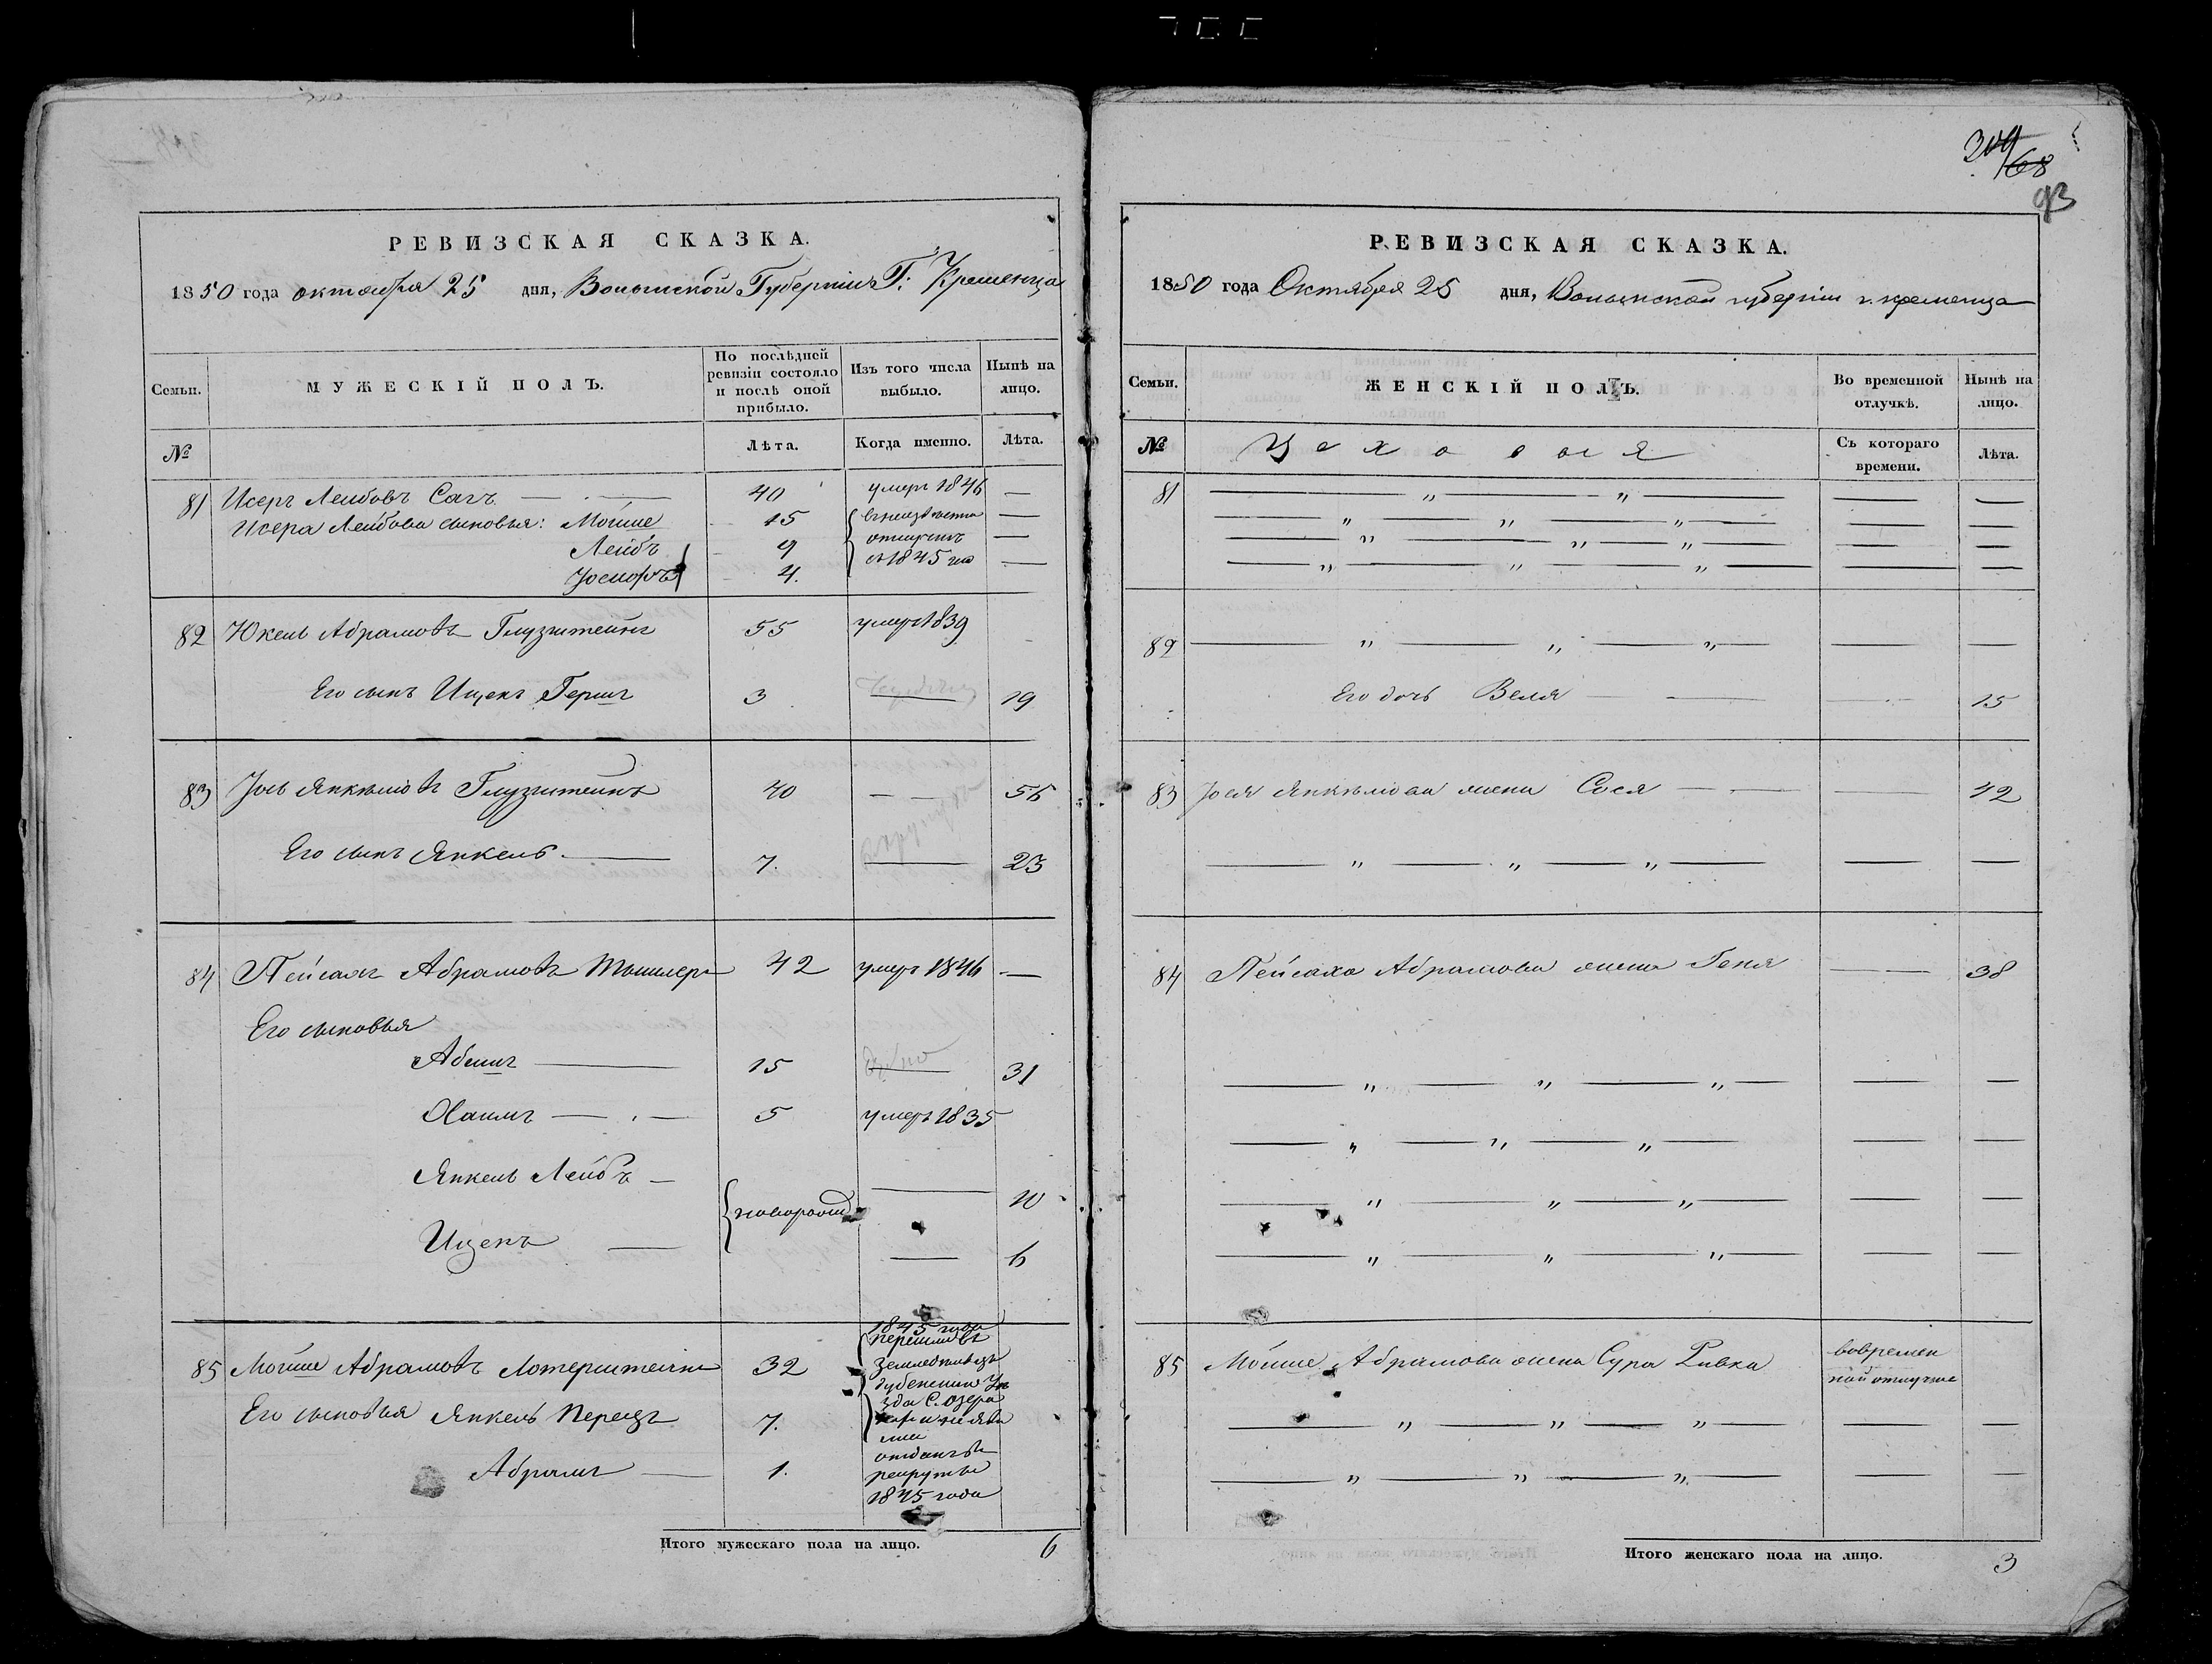 304
68
93
РЕВИЗСКАЯ СКАЗКА.
1850 года октября 25 дня, Волынской Губернии Г: Кременца
Семьи.
МУЖЕСКІЙ ПОЛЪ.
По послѣдней ревизіи состояло и послѣ оной прибыло.
Изъ того числа выбыло.
Нынѣ на лицо.
№
Лѣта.
Когда именно.
Лѣта.
81 Исеръ Лейбовъ Сагъ 40 умеръ 1846 —
Исера Лейбова сыновья: Мойше 15 —
Лейбъ 9 —
Іосифъ 4. съ 1845 —
82 Юкель Абрамовъ Глузштейнъ 55 умеръ 1839
Его сынъ Ицекъ Гершъ 3 — 19
83 Іось Янкелювъ Глузштейнъ 40 — 56
Его сынъ Янкель 7. — 23
84 Пейсахъ Абрамовъ 42 умеръ 1846 —
Его сыновья
Абишъ 15 — 31
Хаимъ 5 умеръ 1835
Янкель Лейбъ — 10
новорожд
Ицекъ — 6
85 Мойше Абрамовъ Лотерштейнъ 32
1845 года
перешли въ
Его сыновья Янкель Перецъ 7.
Абрамъ 1.
отданъ въ
рекруты
1845 года
Итого мужескаго пола на лицо. 6
РЕВИЗСКАЯ СКАЗКА.
1850 года Октября 25 дня, Волынской губерніи г. кременца
Семьи.
ЖЕНСКІЙ ПОЛЪ.
Во временной отлучкѣ.
Нынѣ на лицо.
№
Цеховыя
Съ котораго времени.
Лѣта.
81 — „ — „ —
— „ — „ — „ —
— „ — „ — „ —
— „ — „ — „ —
82 — „ — „ — „ —
Его дочь Веля — 15
83 Іося Янкелюва жена Сося — 42
— „ — „ — „ —
84 Пейсаха Абрамова жена Геня — 38
— „ — „ — „ —
— „ — „ — „ —
— „ — „ — „ —
— „ — „ — „ —
85 Мойше Абрамова жена Сура Ривка
вовремен
ной отлучке
— „ — „ — „ —
— „ — „ — „ —
Итого женскаго пола на лицо. 3